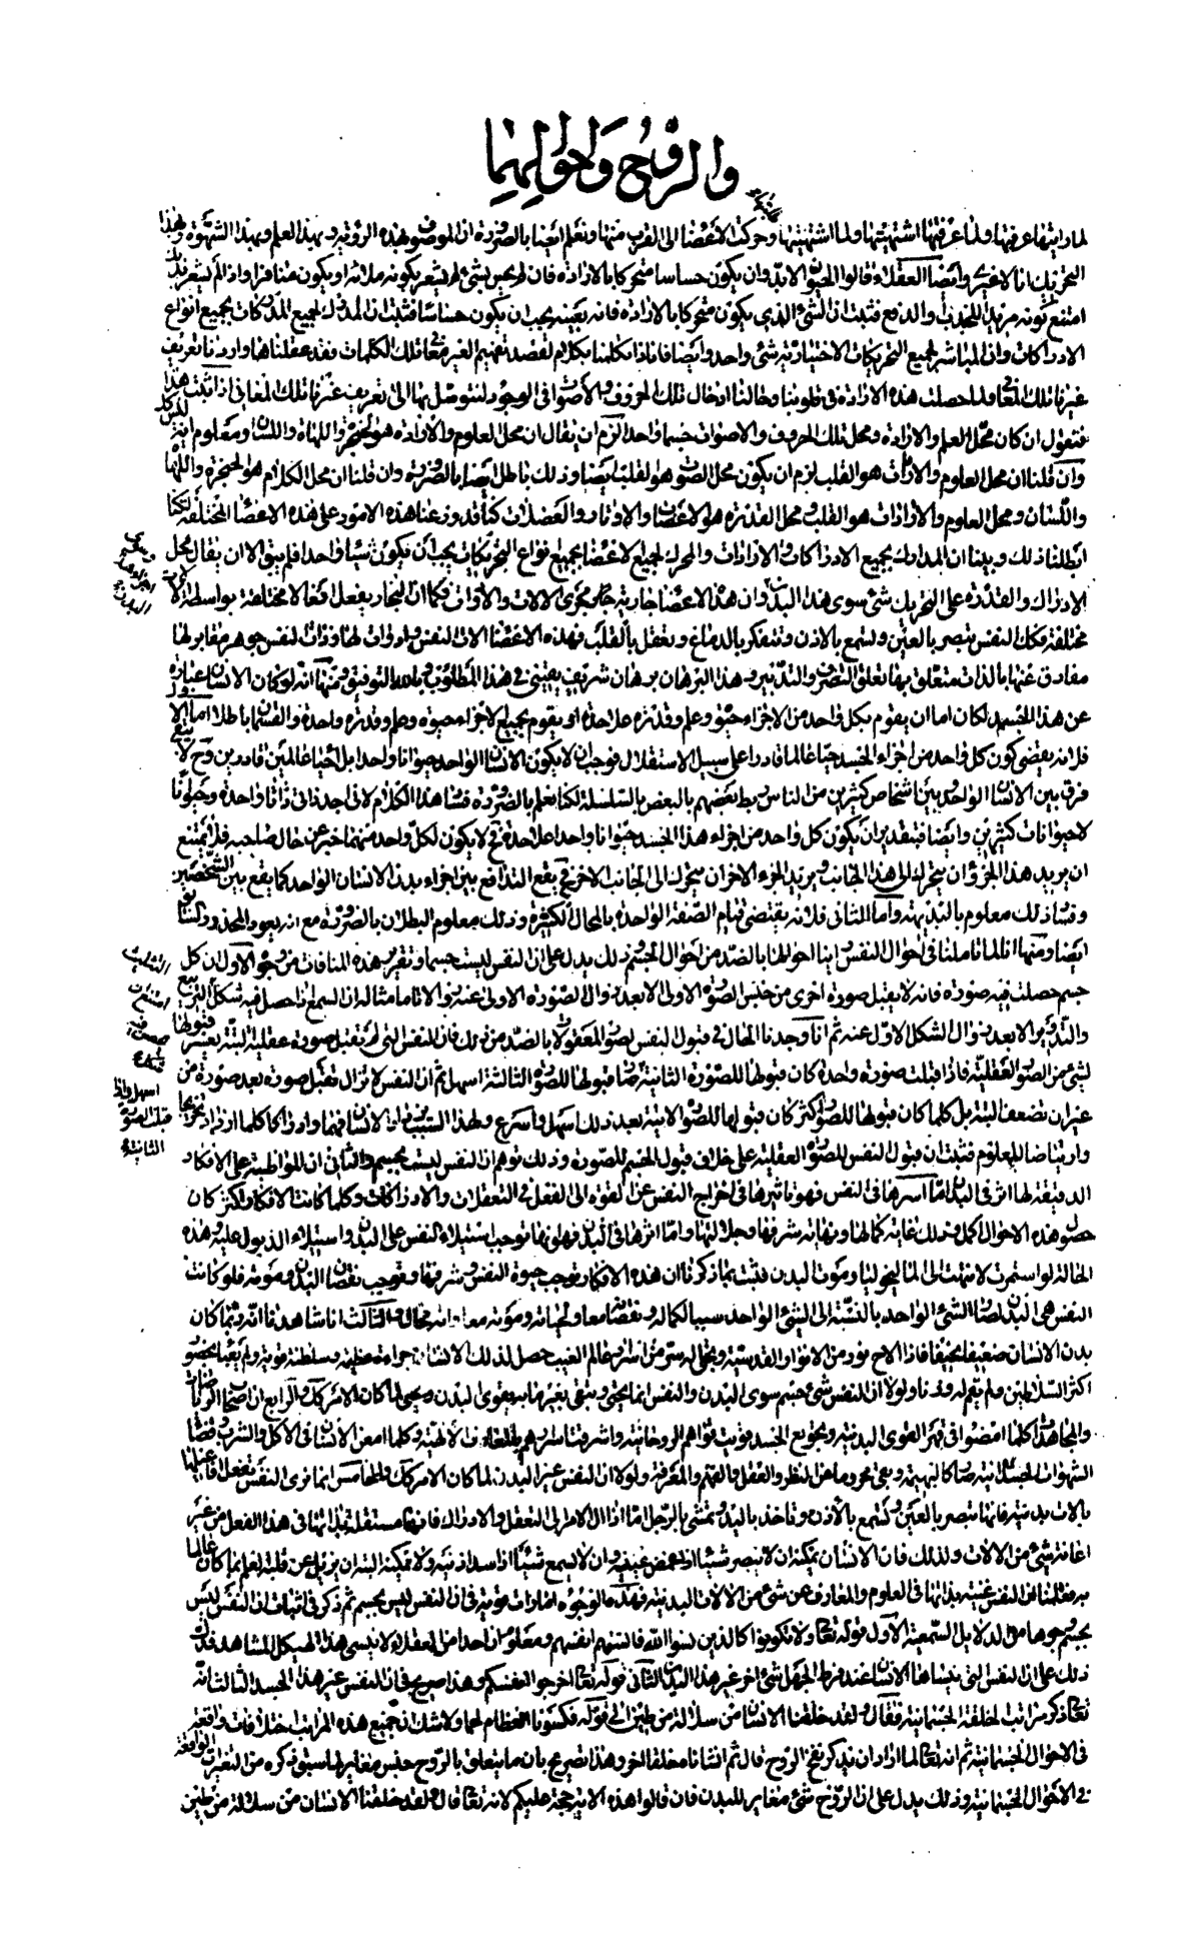 والروح واحوالهما
لما رايتها عرفتها ولما عرفتها اشتهيتها ولما اشتهيتها وحركت الاعضا الى القرب منها ونعلم ايضا بالضرورة ان الموصوف بهذه الرؤية وبهذا العلم وبهذا الشهوة وبهذا
التحريك انا لا غيرى وايضا العقلاء قالوا الحيوان لابد وان يكون حساسا متحركا بالارادة فان لم يحس بشئ لم يشعر بكونه ملائما او يكون منافرا واذا لم يشعر بذلك
امتنع كونه مريدا للجذب والدفع فثبت ان الشئ الذى يكون متحركا بالارادة فانه بعينه يجب ان يكون حساسا فثبت ان المدرك لجميع المدركات بجميع انواع
الادراكات وان المباشر لجميع التحريكات الاختيارية شئ واحد وايضا فانا اذا تكلمنا بكلام لقصد تفهيم الغير معانى تلك الكلمات فقد عقلناها واردنا تعريف
غيرنا تلك المعانى ولما حصلت هذه الارادة فى قلوبنا وحاولنا ادخال تلك الحروف والاصوات فى الوجود لنتوصل بها الى تعريف غيرنا تلك المعانى اذا ثبت هذا
فنقول ان كان محل العلم والارادة ومحل تلك الحروف والاصوات جسما واحدا لزم ان يقال ان محل العلوم والارادة هو الحنجرة واللهاة واللسان ومعلوم انه ليس كذلك
وان قلنا ان محل العلوم والارادات هو القلب لزم ان يكون محل الصوت هو القلب ايضا وذلك باطل ايضا بالضرورة وان قلنا ان محل الكلام هو الحنجرة واللهاة
واللسان ومحل العلوم والارادات هو القلب ومحل القدرة هو الاعصاب والاوتار والعضلات كنا قد وزعنا هذه الامور على هذه الاعضا المختلفة لكنا
ابطلنا ذلك وبينا ان المدرك بجميع الادراكات والارادات والمحرك لجميع الاعضا بجميع انواع التحريكات يجب ان يكون شيئا واحدا فلم يبق الا ان يقال محل
الادراك والقدرة على التحريك شئ سوى هذا البدن وان هذا الاعضا جارية مجرى الالات والادوات فكما ان النجار يفعل افعالا مختلفة بواسطة الات
مختلفة فكذلك النفس تبصر بالعين وتسمع بالاذن وتتفكر بالدماغ وتعقل بالقلب فهذه الاعضا الات النفس وادوات لها وذات النفس جوهر مغاير لها
مفارق عنها بالذات متعلق بها تعلق التصرف والتدبير وهذا البرهان برهان شريف يقينى فى هذا المطلوب وبالله التوفيق ومنها انه لو كان الانسان عبارة
عن هذا الجسد لكان اما ان يقوم بكل واحد من الاجزاء حيوة وعلم وقدرة على حدة او يقوم بجميع الاجزاء حيوة وعلم وقدرة واحدة والقسمان باطلان اما الاول
فلانه يقتضى كون كل واحد من اجزاء الجسد حيا عالما قادرا على سبيل الاستقلال فوجب ان لا يكون الانسان الواحد حيوانا واحدا بل احياء عالمين قادرين وح لا يبقى
فرق بين الانسان الواحد وبين اشخاص كثيرين من الناس ربط بعضهم بالبعض بالسلسلة لكنا نعلم بالضرورة فساد هذا الكلام لانى اجد ذاتى ذاتا واحدة وحيوانا
لا حيوانات كثيرين وايضا فبتقدير ان يكون كل واحد من اجزاء هذا الجسد حيوانا واحدا على حدة فح لا يكون لكل واحد منهما خبر عن حال صاحبه فلا يمتنع
ان يريد هذا الجزؤ ان يتحرك الى هذا الجانب ويريد الجزء الاخر ان يتحرك الى الجانب الاخر فح يقع التدافع بين اجزاء بدن الانسان الواحد كما يقع بين الشخصين
وفساد ذلك معلوم بالبديهة واما الثانى فلانه يقتضى قيام الصفة الواحدة بالمحال الكثيرة وذلك معلوم البطلان بالضرورة مع انه يعود المحذور
ايضا ومنها انا لما تاملنا فى احوال النفس راينا احوالها بالضد من احوال الجسم وذلك يدل على ان النفس ليست جسما وتقرير هذه المنافات من وجوه الاول ان كل
جسم حصلت فيه صورة فانه لا يقبل صورة اخرى من جنس الصورة الاولى الا بعد زوال الصورة الاولى عنه زوالا تاما مثاله ان الشمع اذا حصل فيه شكل التربيع
والتدوير الا بعد زوال الشكل الاول عنه ثم انا وجدنا الحال فى قبول النفس لصور المعقولات بالضد من ذلك فان النفس التى لم تقبل صورة عقلية البتة يعسر قبولها
لشئ من الصور العقلية فاذا قبلت صورة واحدة كان قبولها للصورة الثانية قبولها للصورة الثالثة اسهل ثم ان النفس لا تزال تقبل صورة بعد صورة من
غير ان تضعف البتة بل كلما كان قبولها للصور اكثر كان قبولها للصور الاتية بعد ذلك اسهل واسرع ولهذا السبب يزداد الانسان فهما وادراكا كلما ازداد تخرجا
وارتياضا للعلوم فثبت ان قبول النفس للصور العقلية على خلاف قبول الجسم للصورة وذلك توهم ان النفس ليست بجسم والثانى ان المواظبة على الافكار
الدقيقة لها اثر فى البدن اما اسرها فى النفس فهو تاثيرها فى اخراج النفس عن القوة الى الفعل فى التعقلات والادراكات وكلما كانت الافكار اكثر كان
حصول هذه الاحوال اكمل وذلك غاية كمالها ونهاية شرفها وجلالتها واما اثرها فى البدن فهو انها توجب استيلاء النفس على البدن واستيلاء الذبول عليه وهذه
الحالة لو استمرت لانتهت الى الماليخوليا وموت البدن فثبت بما ذكرنا ان هذه الافكار توجب حيوة النفس وشرفها وتوجب نقصان البدن وموته فلو كانت
النفس هى البدن لصار الشئ الواحد بالنسبة الى الشئ الواحد سببا لكماله ونقصانه معا ولحياته وموته معا وانه محال والثالث انا شاهدنا انه ربما كان
بدن الانسان ضعيفا نحيفا فاذا لاح نور من الانوار القدسية وتجلى له سر من اسرار عالم الغيب حصل لذلك الانسان جراءة عظيمة وسلطنة قوية ولم يعبا بحضور
اكثر السلاطين ولم يقم له وزنا ولولا ان النفس شئ سوى البدن والنفس انما يحيى وتبقى بغير ما به يقوى البدن ويحيى لما كان الامر كذلك والرابع ان اصحاب الرياضات
والمجاهدات كلما امعنوا فى قهر القوى البدنية وتجويع الجسد قويت قواهم الروحانية واشرقت اسرارهم بالمعارف الالهية وكلما امعن الانسان فى الاكل والشرب وقضاء
الشهوات الجسمانية صار كالبهيمة وبقى محروما عن النظر والعقل والفهم والمعرفة ولولا ان النفس غير البدن لما كان الامر كذلك والخامس انما نرى النفس تفعل افاعيلها
بالات بدنية فانها تبصر بالعين وتسمع بالاذن وتاخذ باليد وتمشى بالرجل اما اذا ال الامر الى التعقل والادراك فانها مستقلة بذاتها فى هذا الفعل من غير
اعانة شئ من الالات ولذلك فان الانسان يمكنه ان لا يبصر شيئا اذا غمض عينيه وان لا يسمع شيئا اذا سد اذنيه ولا يمكنه البتة ان يزيل عن قلبه العلم بما كان عالما
به فعلمنا ان النفس غنية بذاتها فى العلوم والمعارف عن شئ من الالات البدنية فهذه الوجوه امارات قوية فى ان النفس ليس بجسم ثم ذكر فى اثبات ان النفس ليس
بجسم وجوها من الدلايل السمعية الاول قوله تعا ولا تكونوا كالذين نسوا الله فانسيهم انفسهم ومعلوم ان احدا من العقلاء لا ينسى هذا الهيكل المشاهد فدل
ذلك على ان النفس التى ينساها الانسان عند فرط الجهل شئ اخر غير هذا البدن الثانى قوله تعا اخرجوا انفسكم وهذا صريح فى ان النفس غير هذا الجسد الثالث انه
تعا ذكر مراتب الخلقة الجسمانية فقال ولقد خلقنا الانسان من سلالة من طين الى قوله فكسونا العظام لحما ولا شك ان جميع هذه المراتب اختلافات واقعة
فى الاحوال الجسمانية ثم انه تعا لما اراد ان يذكر نفخ الروح قال ثم انشاناه خلقا اخر وهذا تصريح بان ما يتعلق بالروح جنس مغاير لما سبق ذكره من التغيرات الواقعة
فى الاحوال الجسمانية وذلك يدل على ان الروح شئ مغاير للبدن فان قالوا هذه الاية حجة عليكم لانه تعا قال ولقد خلقنا الانسان من سلالة من طين